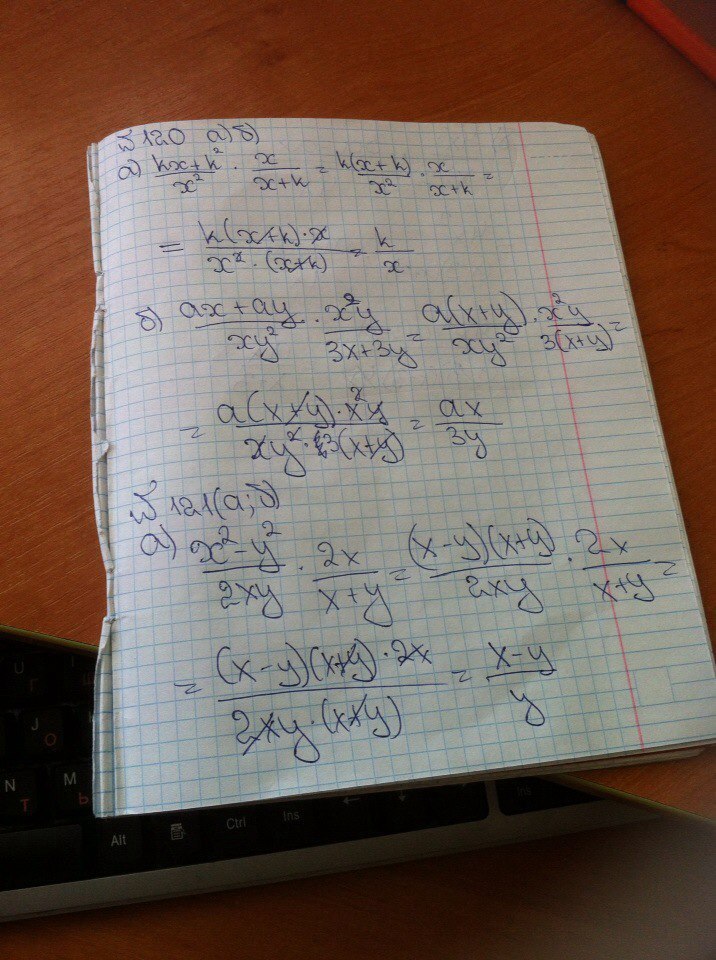 № 120 а) б)
а) (kx+k²)/x² · x/(x+k) = k(x+k)/x² · x/(x+k) =
= (k(x+k)·x)/(x²·(x+k)) = k/x
б) (ax+ay)/(xy²) · (x²y)/(3x+3y) = a(x+y)/(xy²) · (x²y)/(3(x+y)) =
= (a(x+y)·x²y)/(xy²·3(x+y)) = ax/(3y)
№ 121(а;б)
а) (x²-y²)/(2xy) · 2x/(x+y) = ((x-y)(x+y))/(2xy) · 2x/(x+y) =
= ((x-y)(x+y)·2x)/(2xy·(x+y)) = (x-y)/y
J О
N Т
M Ь
Alt
Ctrl
Ins